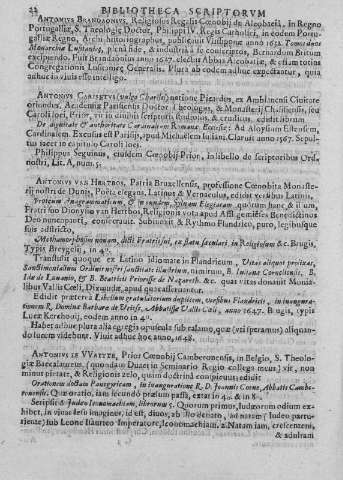 22 BIBLIOTHECA SCRIPTORVM
ANTONIVS BRANDAONIVS, Religiosus Regalis Cœnobij de Alcobatia, in Regno
Portugalliæ, S. Theologiæ Doctor, Philippi IV. Regis Catholici, in eodem Portu-
galliæ Regno, Archi historiographus, publici iuris fecit anno 1632. Tomos duos
Monarchiæ Lusitanæ, plena fide, & industria à se conceptos, Bernardi Britti
excipiendo. Fuit Brandaonius anno 1627. electus Abbas Alcobatiæ, & etiam totius
Congregationis Lusitanæ Generalis. Plura ab codem adhuc expectantur, quia
adhuc in viuis esse intelligo.
ANTONIVS natione Picardus, ex Ambianensi Ciuitate
oriundus, Academiæ Parisiensis Doctor Theologus, & Monasterij Claliacensis, seu
Caroli loci, Prior, vir in conscriptis studiosus, & eruditus, edidit librum
De dignitate & authoritate Cardinalium Romanæ Ecclesiæ: Ad Aloysium Estensem,
Cardinalem. Excusus est Parisijs, apud Michaelem Iulianis. Claruit anno 1567. Sepul-
tus iacet in capitulo Caroli loci.
Philippus Seguinus, eiusdem Cœnobij Prior, in libello de scriptoribus Ord.
nostri, Lit. A, num. 5.
ANTONIVS VAN HERTBOS, Patria Bruxellensis, professione Cœnobita Monaste-
rij nostri de Dunis, Poëta elegans, Latinus & Vernaculus, edidit versibus Latinis,
Protheum Anagrammaticum, & in eundem, Elegiam quotum parte & illum,
Fratri suo Dionysio van Hertbos, Religionis vota apud Affligenienses Benedictinos
Deo nuncupanti, consecrauit. Subiunxit, & Rythmo Flandrico, puro, legibusque
suis adstricto,
nouum, dicti Fratris sui, ex statu sæculari in Religiosum &c. Brugis,
Typis Breygelij, anno
Transtulit quoque ex Latino idiomate in Flandricum, Vitas aliquot præcipuas,
Sanctimonialium Ordinis nostri sanctitate illustrium, nimirum, B. Iulianæ Corneliensis, B.
Idæ de Louanio, & B. Beatricis Priorissæ de Nazareth. &c. quas vitas donauit Monia-
libus Vallis Cœli, Dixmudæ, apud quas asseruantur.
Edidit præterea Libellum gratulatorium duplicem, versibus Flandricis, in inaugura-
tionem R. Domini Barbaræ de Abbatissæ Vallis Cœli, anno 1647. Brugis, typis
Lucæ Kerchouij, eodem anno in 4o.
Habet adhuc plura alia egregia opuscula sub calamo, quæ (vti speramus) aliquan-
do lucem videbunt. Viuit adhuc hoc anno, 1648.
ANTONIVS LE WAITTE, Prior Cœnobij Camberonensis, in Belgio, S. Theolo-
giæ Baccalaureus, (quondam Duaci in Seminario Regio collega meus) vir, non
minus pietate, & Religionis zelo, quàm doctrina conspicuus; edidit
Orationem dictam Panegyricam, in inaugurationem R. D. Ioannis Abbatis Cambe-
ronensis. Quæ oratio, iam secundò præsum passa, extat in 4o. & in 8o.
Scripsit & Iudeo Iconomachiam, libros 5. Quorum primus, Iudæorum odium ex-
hibet, in viuas Iesu imagines, id est, diuos, ab illo denato, ad natam (Iudæo parturi-
ente) sub Leone Isaurico Imperatore, Iconomachiam. 2. Natam iam, crescentem,
& adultam